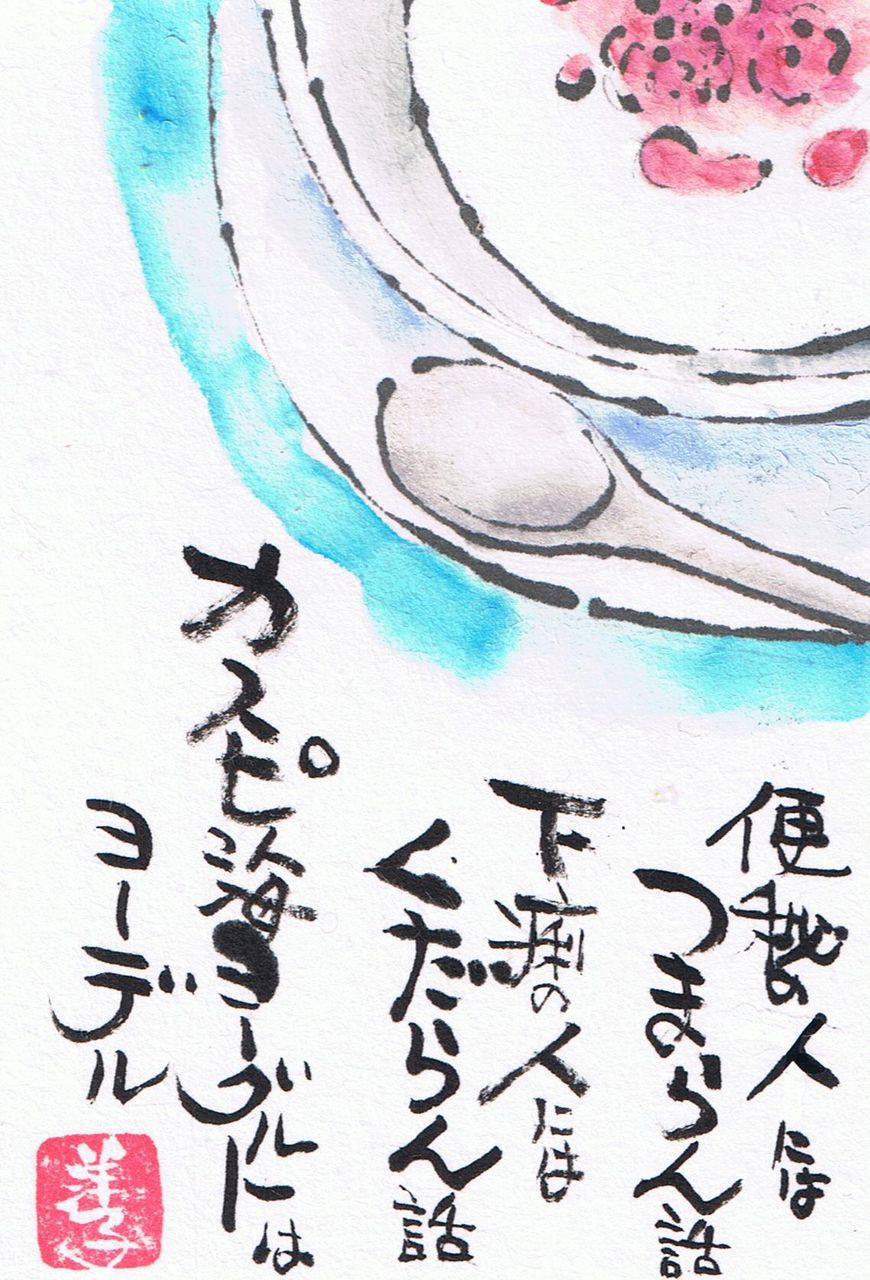 便秘の人には
つまらん話
下痢の人には
くだらん話
カスピ海ヨーグルトは
ヨーデル
洋子